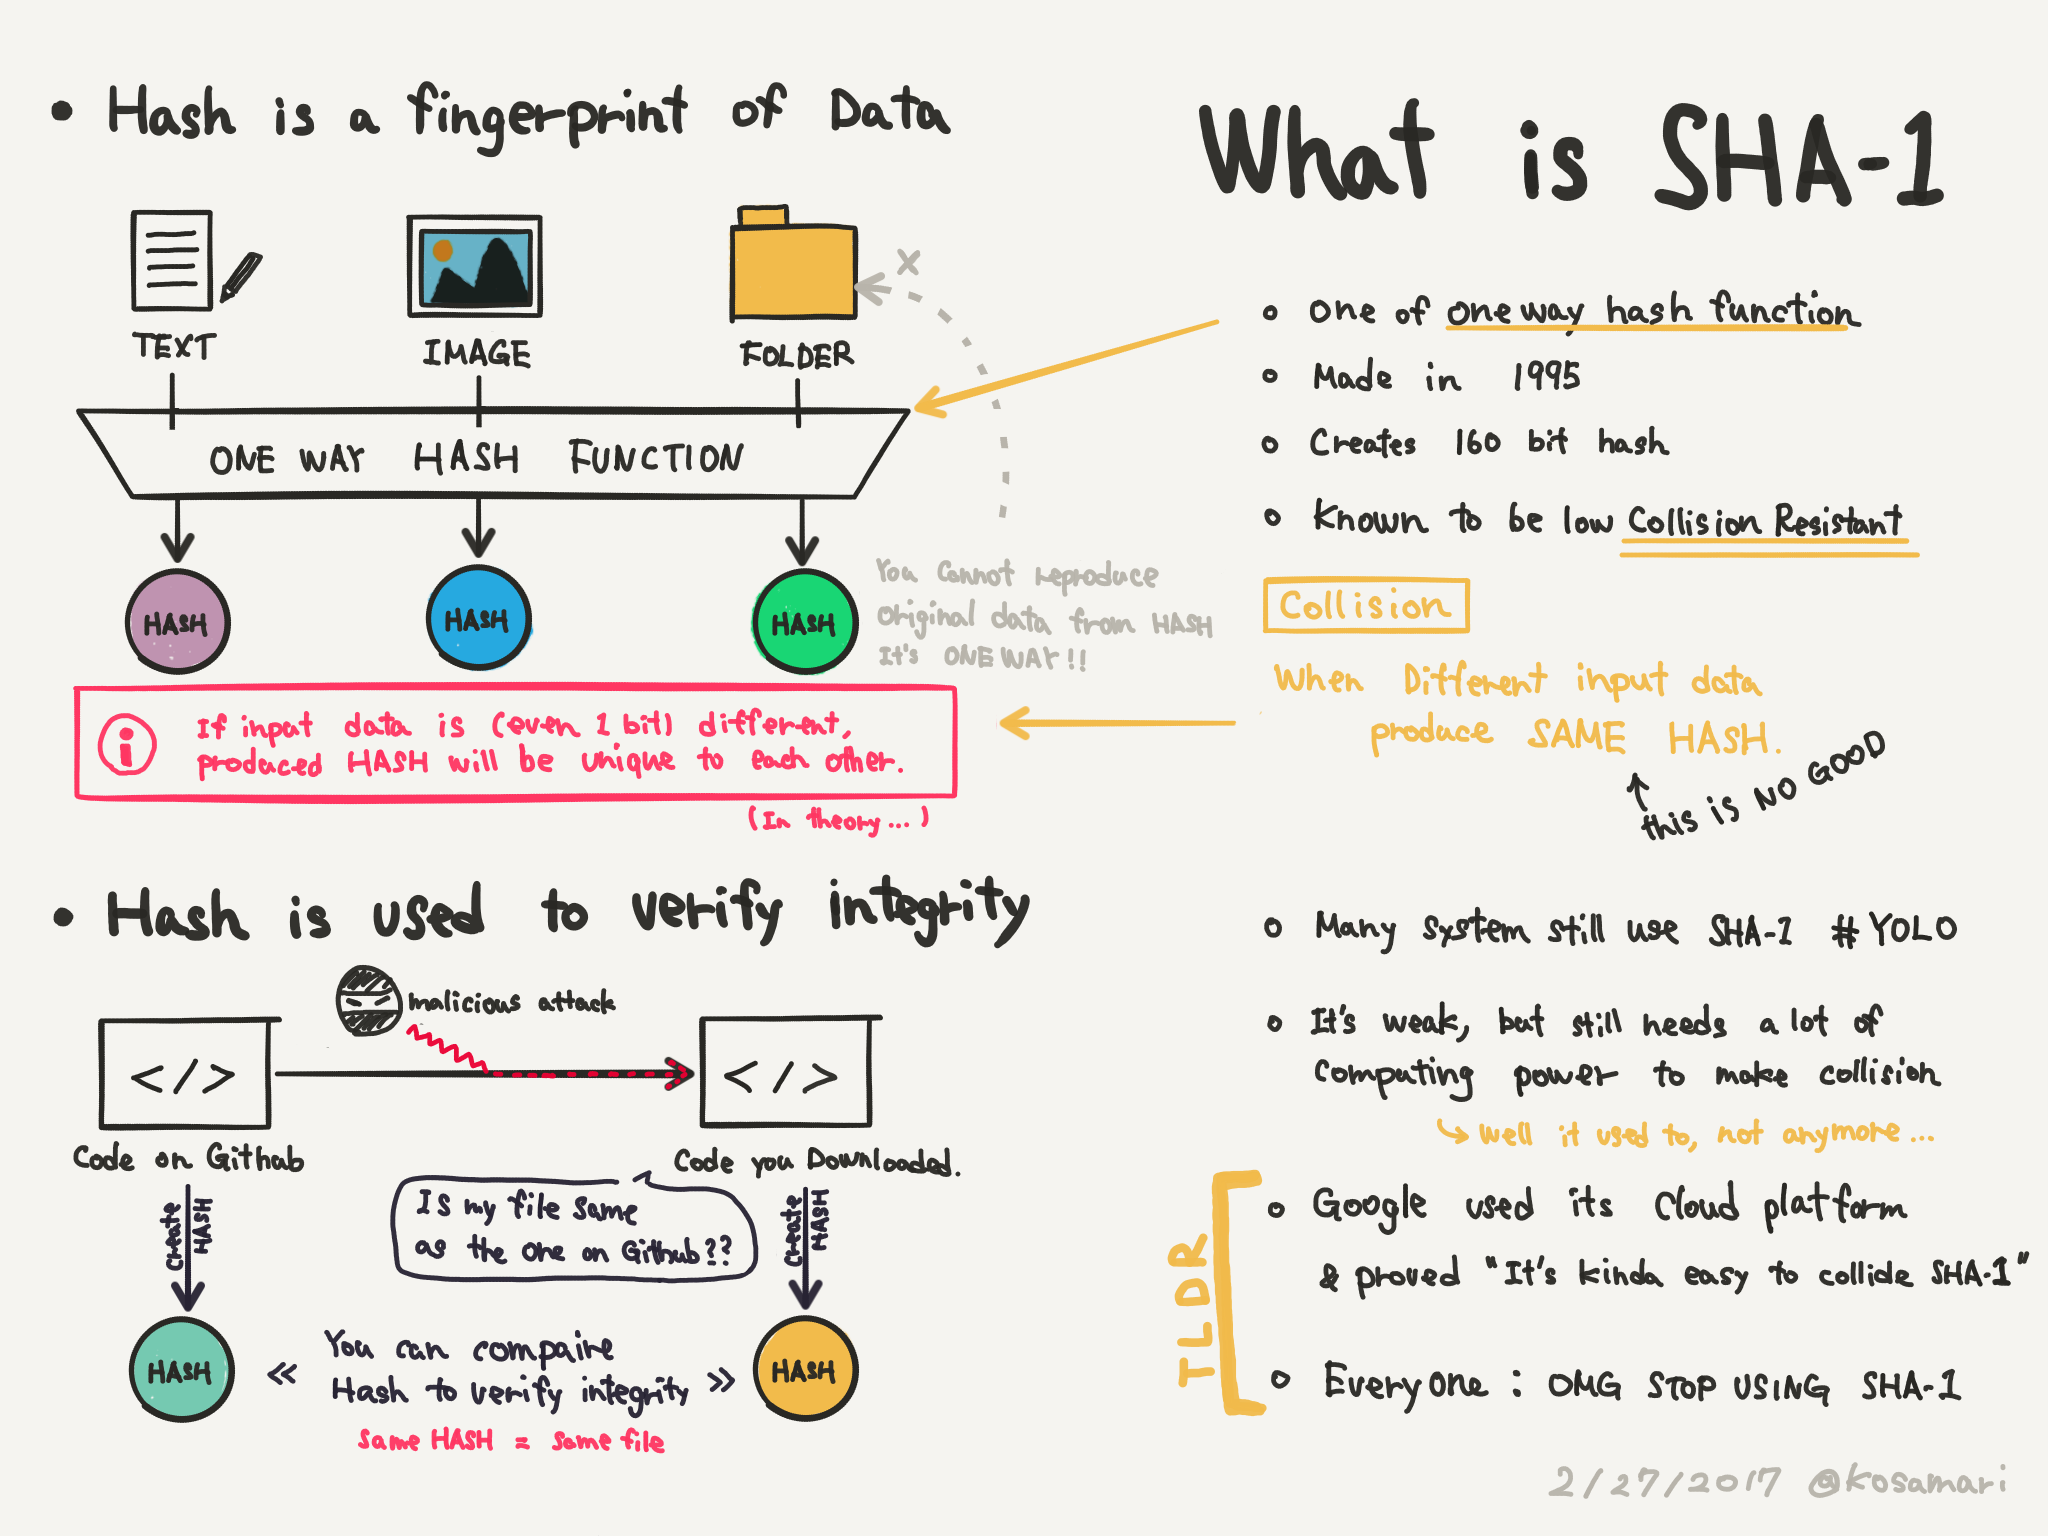 • Hash is a fingerprint of Data
TEXT
IMAGE
FOLDER
x
ONE WAY HASH FUNCTION
HASH
HASH
HASH
You Cannot reproduce
Original data from HASH
It's ONE WAY!!
i
If input data is (even 1 bit) different,
produced HASH will be unique to each other.
(In theory...)
• Hash is used to verify integrity
malicious attack
</>
</>
Code on Githab
Code you Downloaded.
Create
HASH
Is my file same
as the one on Github??
Create
HASH
HASH
« You can compaire
Hash to verify integrity »
same HASH = same file
HASH
What is SHA-1
o One of one way hash function
o Made in 1995
o Creates 160 bit hash
o Known to be low Collision Resistant
Collision
When Different input data
produce SAME HASH.
this is NO GOOD
o Many system still use SHA-1 #YOLO
o It's weak, but still needs a lot of
computing power to make collision
well it used to, not anymore...
TLDR
o Google used its Cloud platform
& proved "It's kinda easy to collide SHA-1"
o Everyone : OMG STOP USING SHA-1
2/27/2017 @kosamari